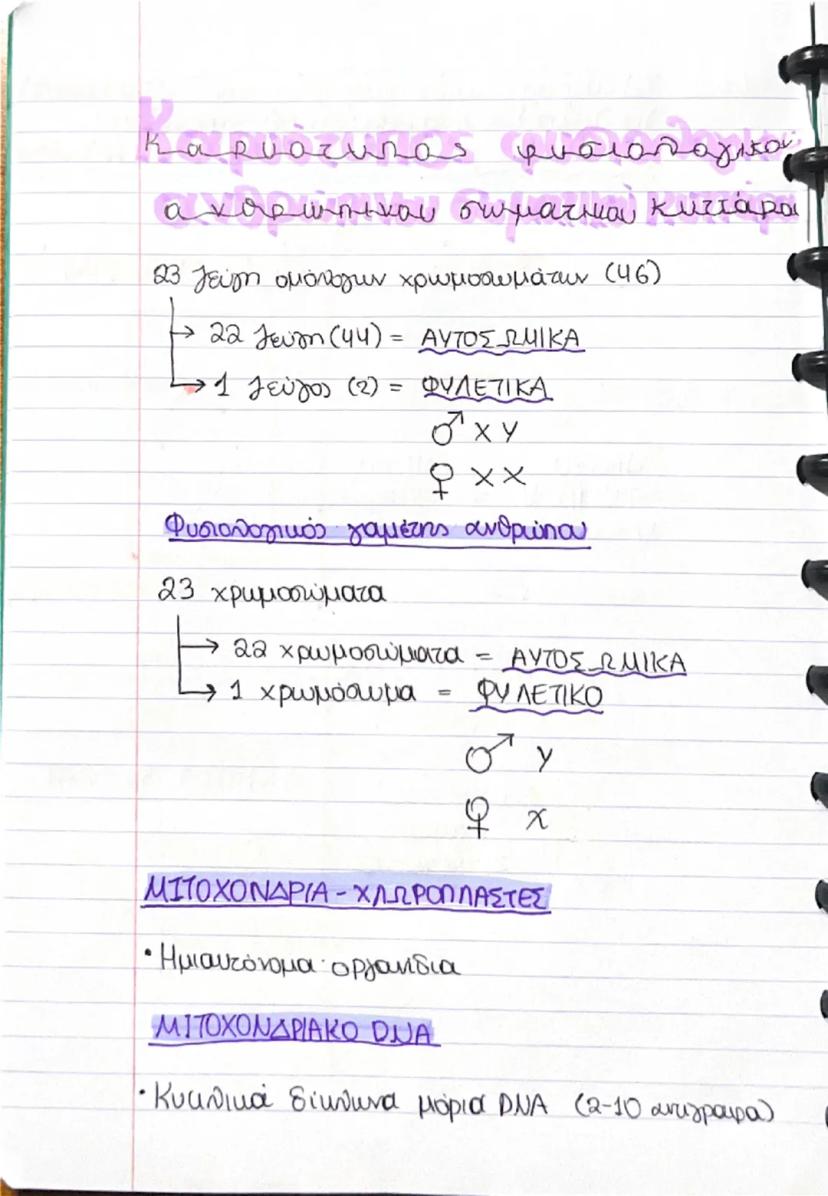 Καρυότυπος φυσιολογικού
ανθρώπινου σωματικού κυττάρου
23 ζεύγη ομόλογων χρωμοσωμάτων (46)
→ 22 ζεύγη (44) = ΑΥΤΟΣΩΜΙΚΑ
→ 1 ζεύγος (2) = ΦΥΛΕΤΙΚΑ
♂ Χ Υ
♀ Χ Χ
Φυσιολογικός γαμέτης ανθρώπου
23 χρωμοσώματα
→ 22 χρωμοσώματα = ΑΥΤΟΣΩΜΙΚΑ
→ 1 χρωμόσωμα = ΦΥΛΕΤΙΚΟ
♂ Υ
♀ Χ
ΜΙΤΟΧΟΝΔΡΙΑ - ΧΛΩΡΟΠΛΑΣΤΕΣ
• Ημιαυτόνομα οργανίδια
ΜΙΤΟΧΟΝΔΡΙΑΚΟ DNA
• Κυκλικά δίκλωνα μόρια DNA (2-10 αντίγραφα)